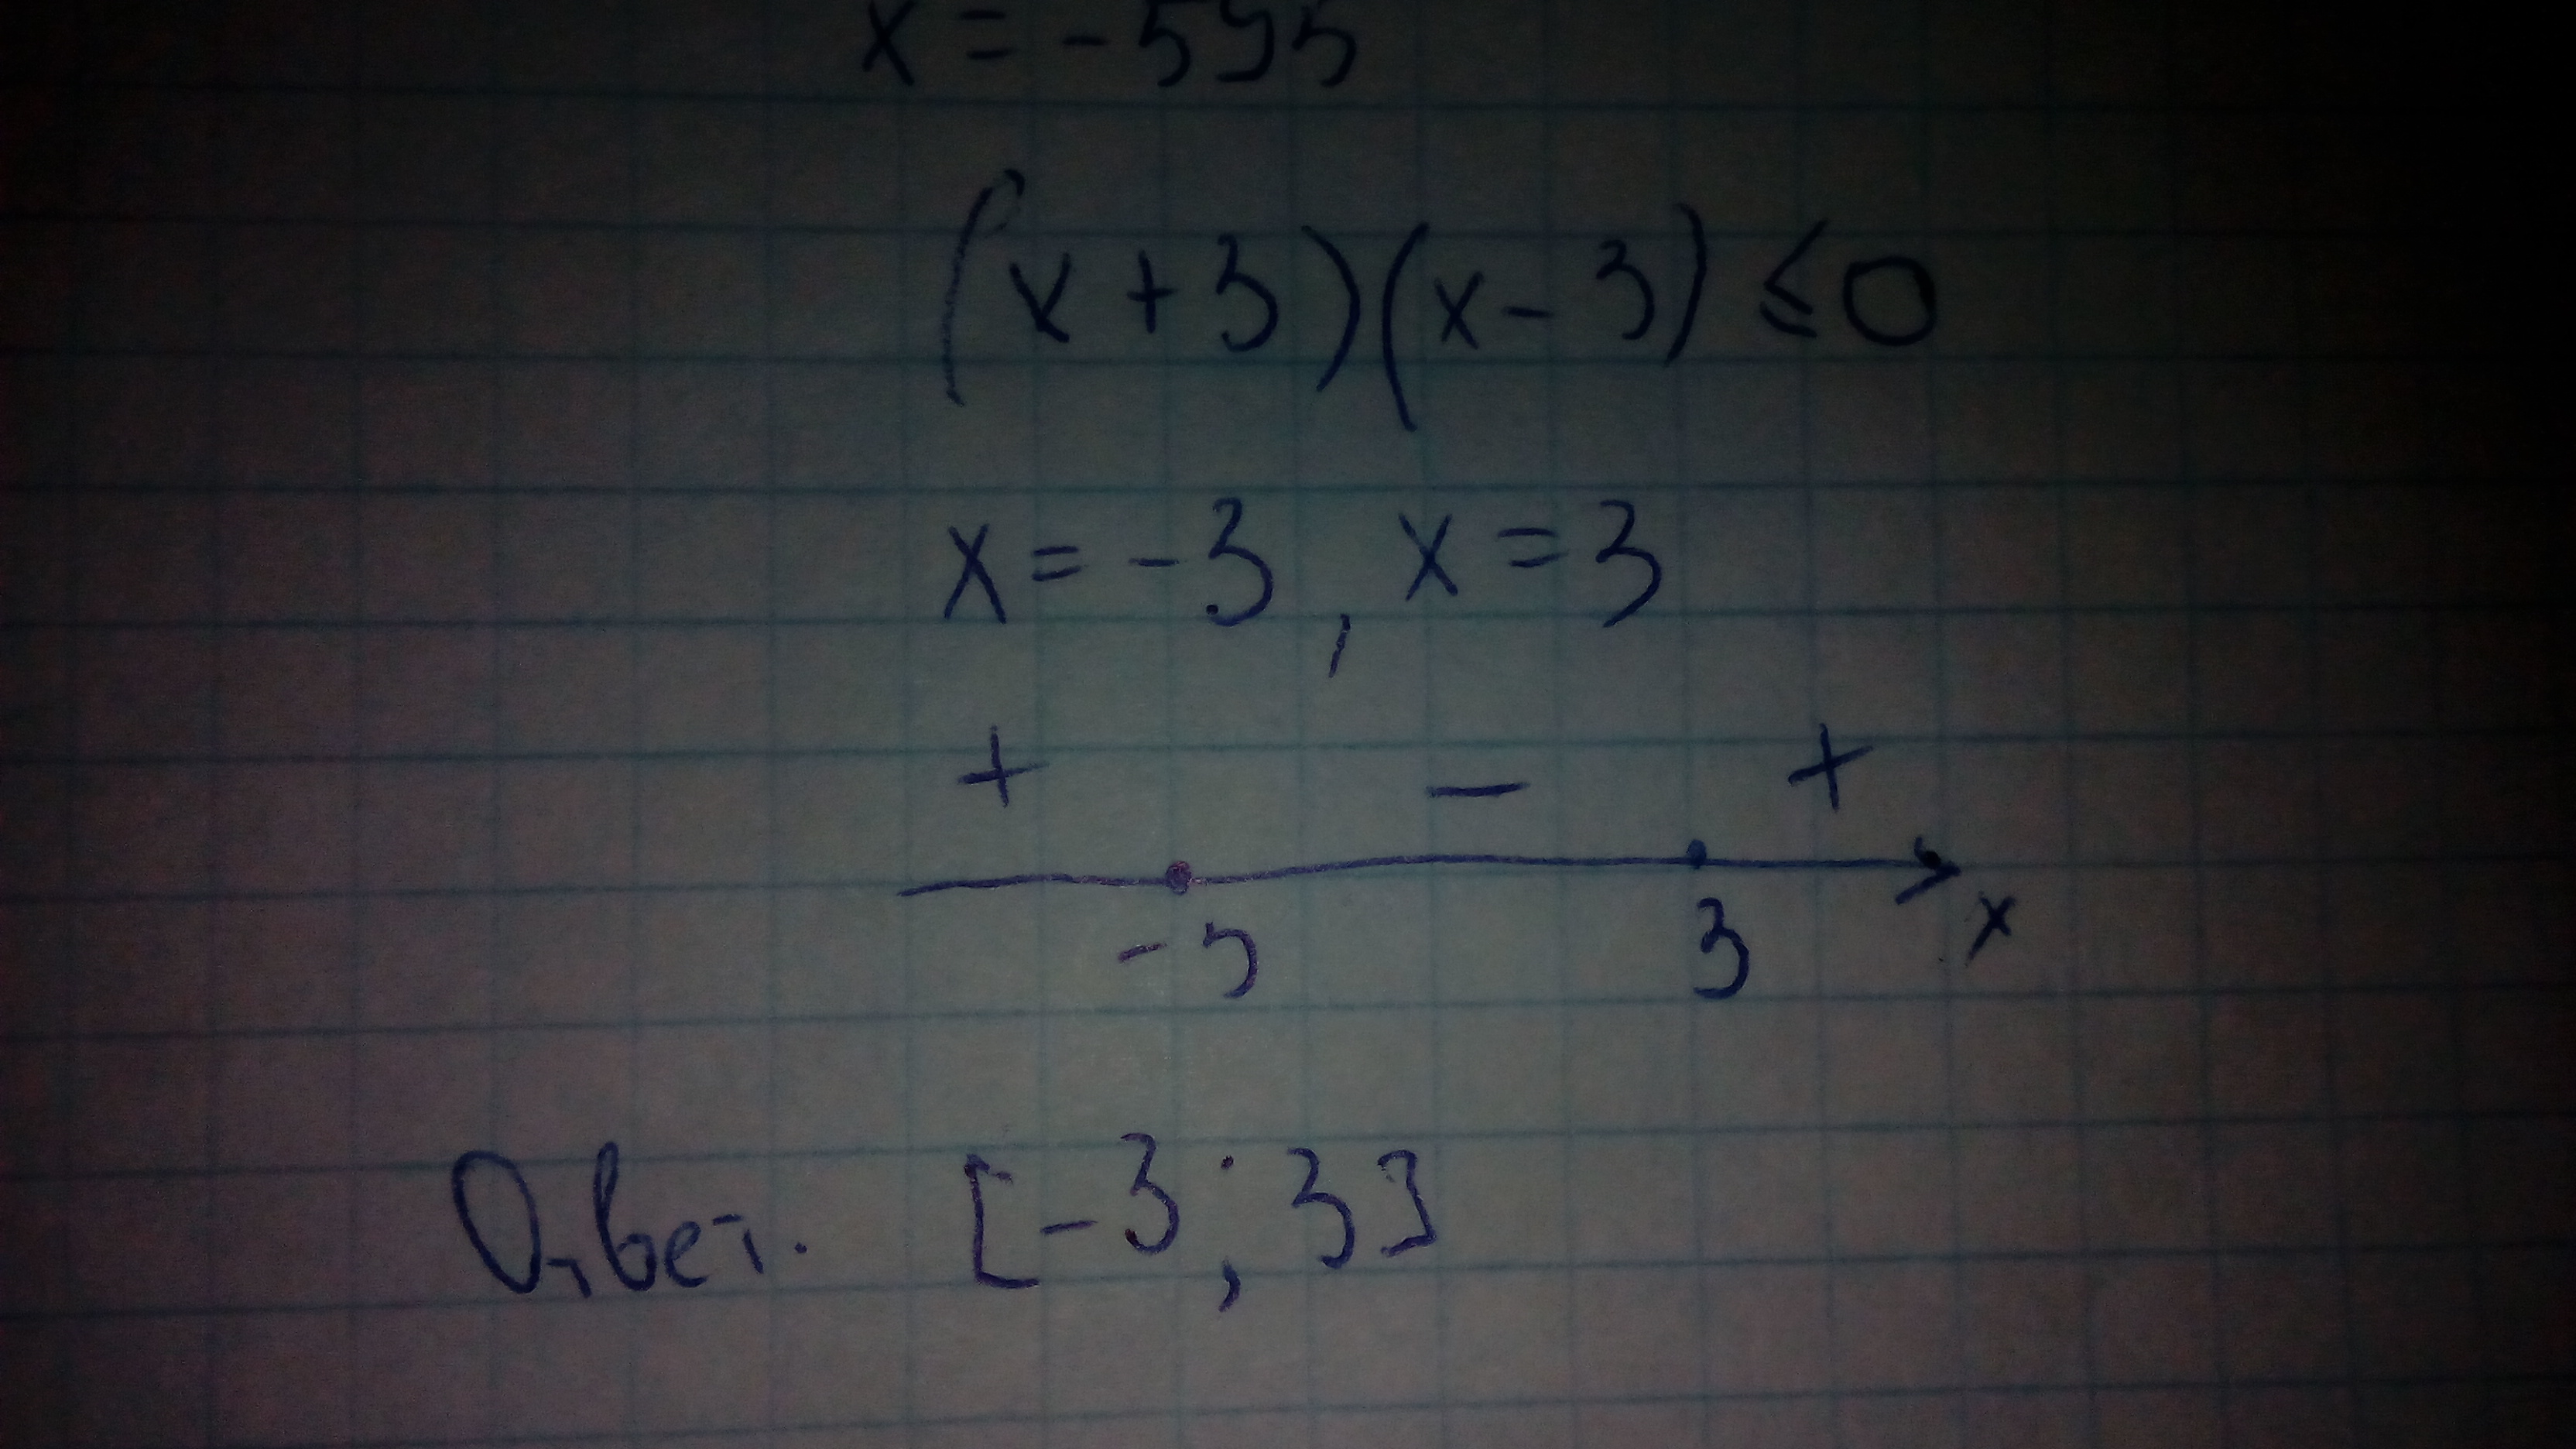 x = -595
(x + 3)(x - 3) ≤ 0
x = -3, x = 3
+ - +
-3 3 x
Ответ. [-3; 3]